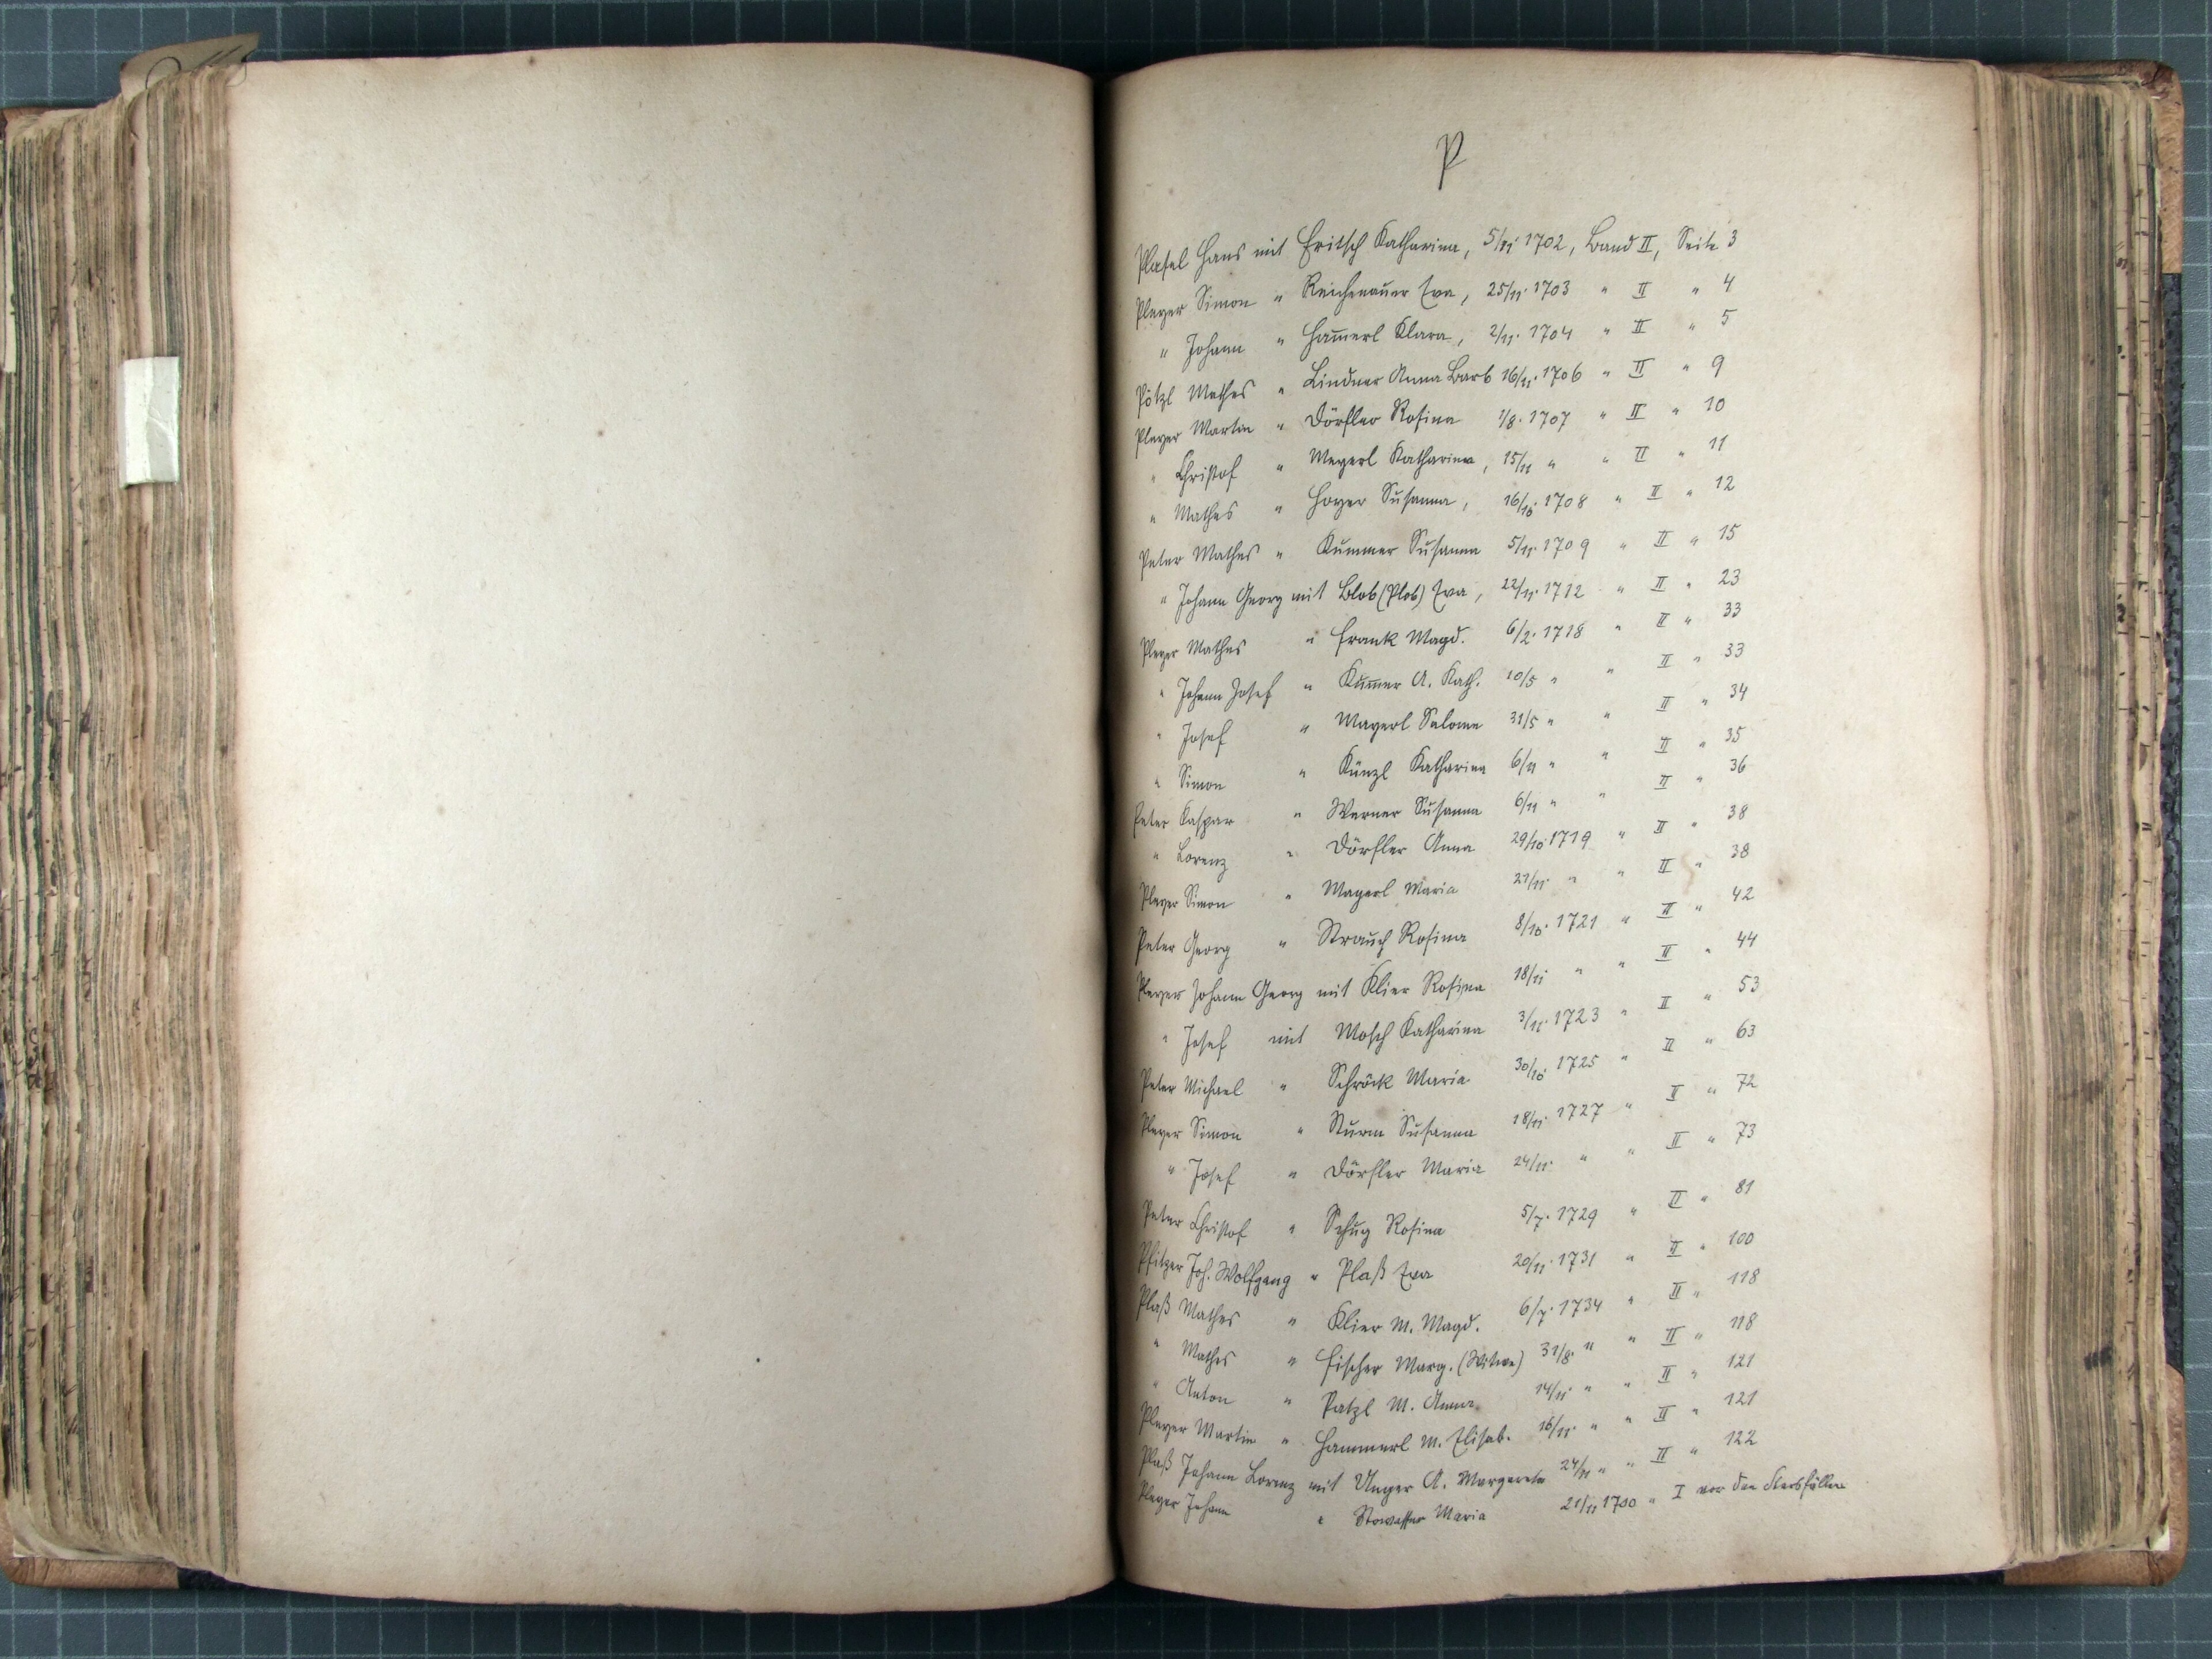 P
Plasel Hans mit Fritsch Katharina, 5/11 1702, Band II, Seite 3
Pleyer Simon " Reichenauer Eva, 25/11. 1703 " II " 4
" Johann " Ham̄erl Klara, 2/11. 1704 " II " 5
Pötzl Mathes " Lindner Anna Barb 16/11. 1706 " II " 9
Pleyer Martin " Dörfler Rosina 1/8. 1707 " II " 10
" Christof " Meyerl Katharina, 15/11 " " II " 11
" Mathes " Hoyer Susanna, 16/10. 1708 " II " 12
Peter Mathes " Kummer Susanna 5/11. 1709 " II " 15
" Johann Georg mit Blob (Plob) Eva, 22/11. 1712 " II " 23
Pleyer Mathes " Frank Magd. 6/2. 1718 " II " 33
" Johann Josef " Kum̄er A. Kath. 10/5 " " II " 33
" Josef " Mayerl Salome 31/5 " " II " 34
" Simon " Künzl Katharina 6/11 " " II " 35
Peter Kaspar " Werner Susanna 6/11 " " II " 36
" Lorenz " Dörfler Anna 29/10 1719 " II " 38
Pleyer Simon " Mayerl Maria 21/11. " " II " 38
Peter Georg " Strauch Rosina 8/10. 1721 " II " 42
Pleyer Johann Georg mit Klier Rosina 18/11 " " II " 44
" Josef mit Mosch Katharina 3/11. 1723 " II " 53
Peter Michael " Schröck Maria 30/10. 1725 " II " 63
Pleyer Simon " Sturm Susanna 18/11. 1727 " II " 72
" Josef " Dörfler Maria 24/11. " " II " 73
Peter Christof " Schug Rosina 5/7. 1729 " II " 81
Pfitzer Joh. Wolfgang " Plaß Eva 20/11. 1731 " II " 100
Plaß Mathes " Klier M. Magd. 6/7. 1734 " II " 118
" Mathes " Fischer Marg. (Witwe) 31/8. " " II " 118
" Anton " Patzl M. Anna 14/11. " " II " 121
Pleyer Martin " Hammerl M. Elisab. 16/11. " " II " 121
Plaß Johann Lorenz mit Unger A. Margareta 24/11 " " II " 122
Pleyer Johann " Stowasser Maria 21/11 1700 " I vor den Sterbfällen